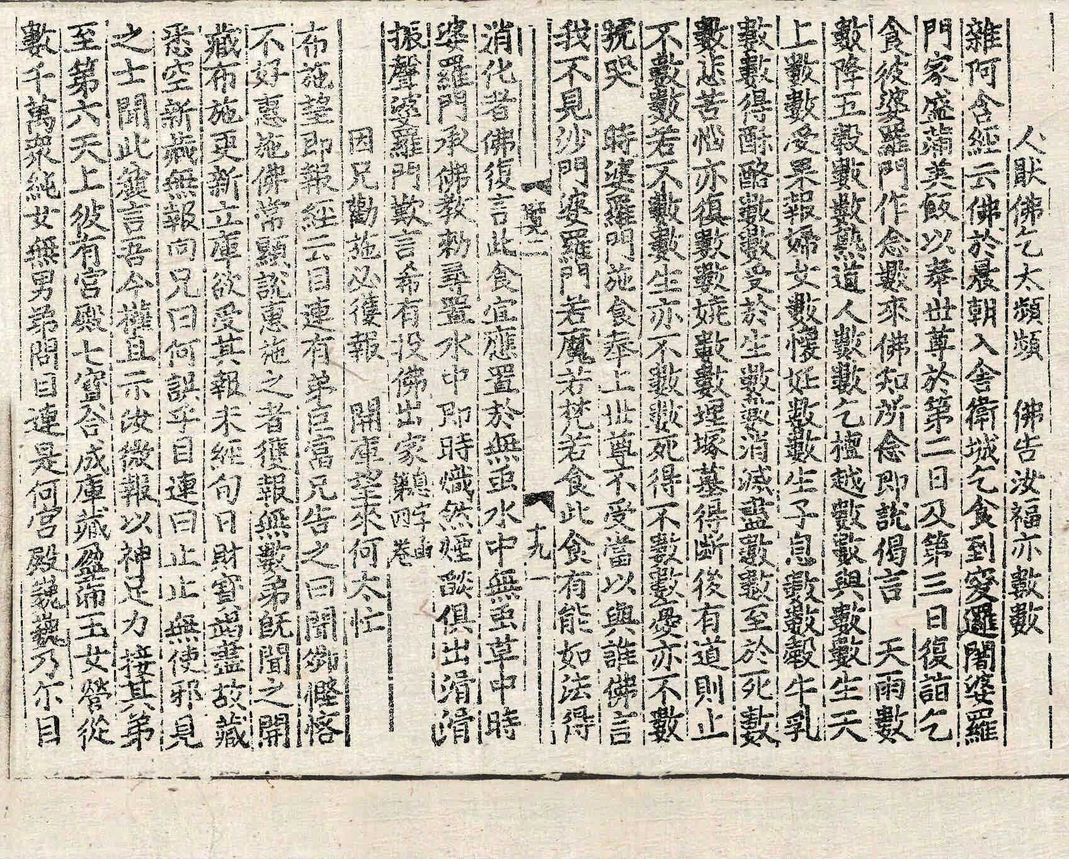 人猒佛乞太頻頻　佛告汝福亦數數
雜阿含經云佛於晨朝入舍衛城乞食到突邏闍婆羅
門家盛蒲美飯以奉世尊於第二日及第三日復詣乞
食彼婆羅門作念數來佛知所念即說偈言　天雨數
數降五穀數數熟道人數數乞檀越數數與數數生天
上數數受果報婦女數懷姙數數生子息數數㲉牛乳
數數得酥酪數數受於生數數消滅盡數數至於死數
數悲苦惱亦復數數數燒數數埋塚墓得斷後有道則止
不數數若不數數生亦不數數死得不數數憂亦不數
號哭　時婆羅門施食奉上世尊不受當以與誰佛言
我不見沙門婆羅門若魔若梵若食此食有能如法得
十九
消化者佛復言此食宜應置於無虫水中無虫草中時
婆羅門承佛教勑尋置水中即時熾然煙𦦨俱出湑湑
振聲婆羅門歎言希有投佛出家第四卷
因兄勸施必獲報　開庫望來何太忙
布施望即報經云目連有弟巨富兄告之曰聞卿慳悋
不好惠施佛常顯說惠施之者獲報無數弟旣聞之開
藏布施更新立庫欲受其報未經旬日財寶竭盡故藏
悉空新藏無報向兄曰何誤乎目連曰止止無使邪見
之士聞此麤言吾今權且示汝微報以神足力　接其弟
至第六天上彼有宮殿七寶合成庫藏盈蒲玉女營從
數千萬衆純女無男弟問目連是何宮殿巍巍乃尔目